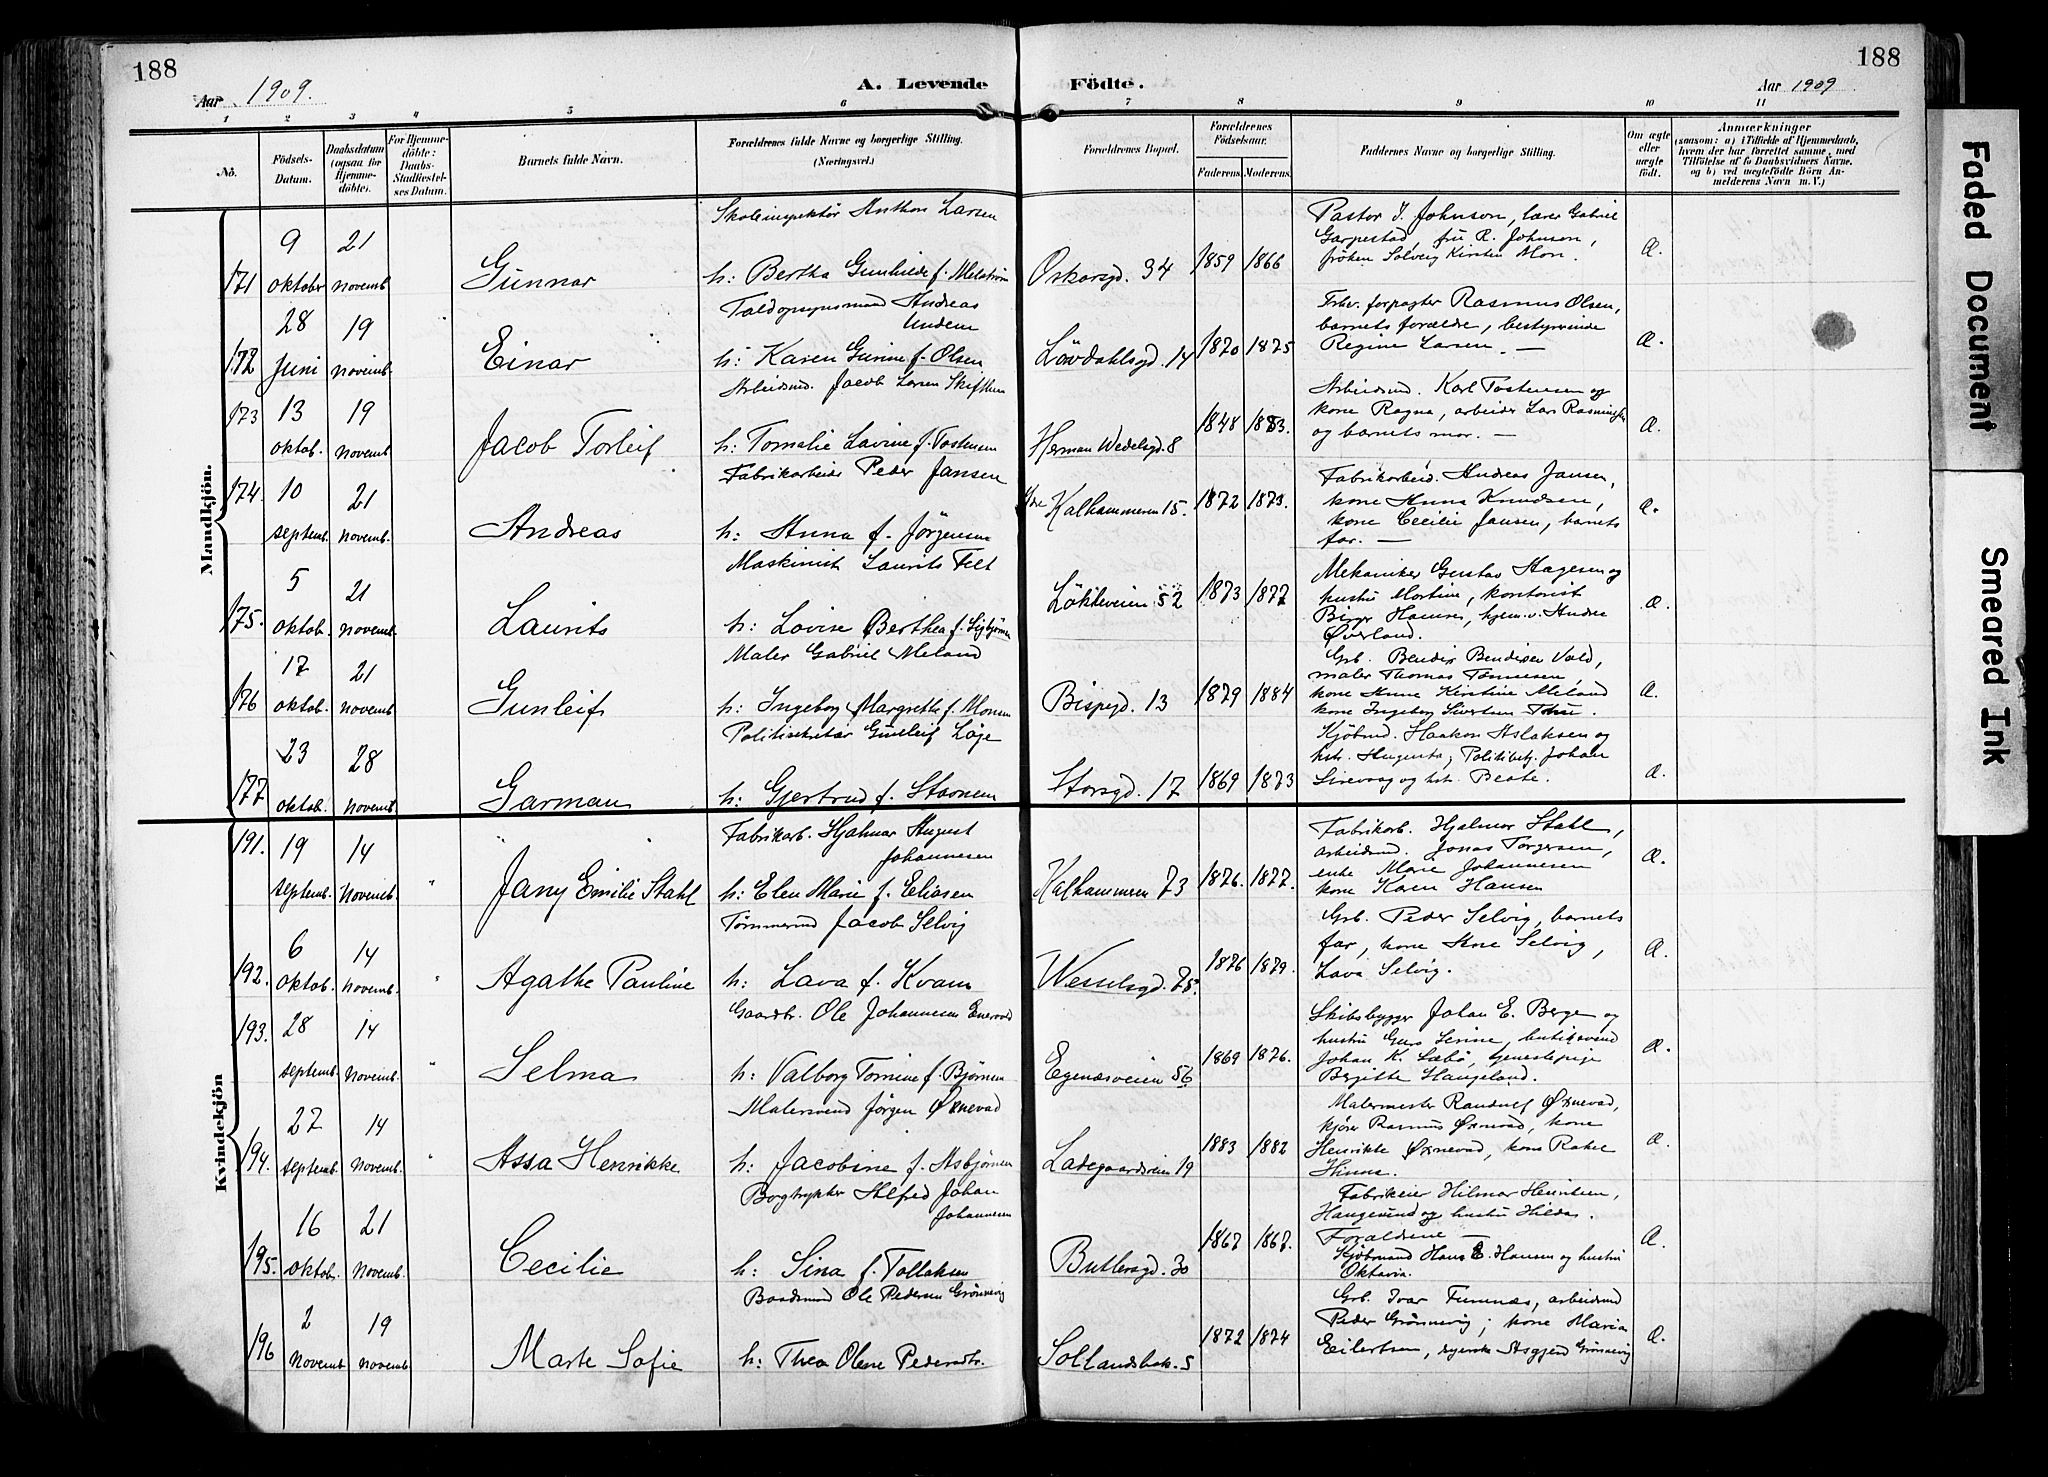 188
Aar 1909.
A. Levende
Födte.
Aar 1909
188
1 2 3 4 5 6 7 8 9 10 11
No.
Födsels-Datum.
Daabsdatum (ogsaa for Hjemmedöbte).
For Hjemmedöbte: Daabs-Stadfæstelses Datum.
Barnets fulde Navn.
Forældrenes fulde Navne og borgerlige Stilling. (Næringsvei.)
Forældrenes Bopæl.
Forældrenes Födselsaar.
Faderens. Moderens.
Faddernes Navne og borgerlige Stilling.
Om ægte eller uægte födt.
Anmærkninger
(saasom: a) i Tilfælde af Hjemmedaab,
hvem der har forrettet samme, med
Tilföielse af to Daabsvidners Navne.
og b) ved uægtefödte Börn Anmelderens Navn m. V.)
Mandkjön.
171 9 oktober 21 novemb. Gunnar
Skoleinspektör Anthon Larsen
h: Bertha Gunhilde f. Melström
Oskarsgd. 34 1859 1866
Pastor J. Johnson, lærer Gabriel
Garpestad, fru R. Johnson,
fröken Solveig Kirstin Mon. Æ.
172 28 Juni 19 novemb. Einar
Toldopsynsmand Andreas
Undem
h: Karen Gurine f. Olsen
Lövdahlsgd. 14 1870 1875
Fhv. forpagter Rasmus Olsen,
barnets forældre, bestyrerinde
Regine Larsen. — Æ.
173 13 oktob. 19 novemb Jacob Torleif
Arbeidsmd. Jacob Larsen Skiftun
h: Tomalie Lavine f. Tostensen
Herman Wedelsgd. 8 1848 1883.
Arbeidsmd. Karl Tostensen og
kone Ragna, arbeider Lars Rasmussen
og barnets mor. — Æ.
174. 10 septemb. 21 novemb. Andreas
Fabrikarbeider Peder Jansen
h: Anna f. Jörgensen
Ydre Kalhammeren 15. 1872 1873.
Fabrikarbeid. Andreas Jansen,
kone Anna Knudsen,
kone Cecilie Jansen, barnets
far. — Æ.
175. 5 oktob. 21 novemb. Laurits
Maskinist Laurits Telt
h: Lovise Berthea f. Sigbjörnsen
Lökkeveien 52 1873 1877
Mekaniker Gustav Aagesen og
hustru Martine, kontorist
Birger Hansen, hjem.v. Andrea
Øverland. Æ.
176 17 oktob. 21 novemb Gunleif
Maler Gabriel Meland
h: Ingeborg Margrethe f. Monsen
Bispegd. 13 1879 1884
Grb. Bendix Bendixen Vold,
maler Thomas Tönnesen,
kone Anne Kirstine Meland
kone Ingeborg Sivertsen Thu. Æ.
177 23 oktob. 28 novembr Garman
Politisekretær Gunleif Löge
h: Gjertrud f. Stornem
Storsgd. 17 1869 1873
Kjöbmd. Haakon Aslaksen og
hst. Augusta, Politibetj. Johan
Sirevaag og hst. Beate. Æ.
Kvindekjön
191. 19 septemb. 14 Novemb. " Jany Emilie Stahl
Fabrikarb. Hjalmar August
Johannesen
h: Elen Marie f. Eliasen
Kalhammeren 23 1876. 1877.
Fabrikarb. Hjalmar Stahl,
arbeidsmd. Jonas Torgersen,
enke Marie Johannesen
kone Karen Hansen Æ.
192. 6 oktob. 14 Novemb. " Agathe Pauline
Tömmermd Jacob Selvig
h: Lava f. Kvam
Wesselsgd. 75. 1876 1879.
Grb. Peder Selvig, barnets
far, kone Ane Selvig,
Lava Selvig. Æ.
193. 28 septemb. 14 Novemb. " Selma
Gaardbr. Ole Johannesen Enevold
h: Valborg Tomine f. Björnsen
Egenæsveien 56 1869 1876.
Skibsbygger Johan E. Berge og
hustru Guro Serine, butiksvend
Johan K. Sæbö, tjenestepige
Bergitte Haugeland. Æ.
194. 27 septemb. 14 Novemb. " Assa Henrikke
Malersvend Jörgen Ørnevad
h: Jacobine f. Asbjörnsen
Ladegaardsveien 19 1883 1882
Malermester Randulf Ørnevad,
kjörer Rasmus Ørnevad, kone
Henrikke Ørnevad, kone Rakel
Hinna. Æ.
195. 16 oktob. 21 Novemb. Cecilie
Bogtrykker Alfred Johan
Johannesen
h: Sina f. Tollaksen
Butlersgd. 30 1867 1867.
Fabrikeier Hilmar Henriksen,
Haugesund og hustru Hilda.
Forældrene —
Kjöbmand Hans E. Hansen og hustru
Oktavia. Æ.
196 2 novemb 19 novemb. Marte Sofie
Baadsmand Ole Pedersen Grönnevig
h: Thea Olene Pedersdtr.
Sollandsbak. 5 1872 1874
Grb. Ivar Furenæs, arbeidsmd
Peder Grönnevig; kone Maria
Eilertsen, syerske Asgjerd Grönnevig Æ.
Faded Document
Smeared Ink